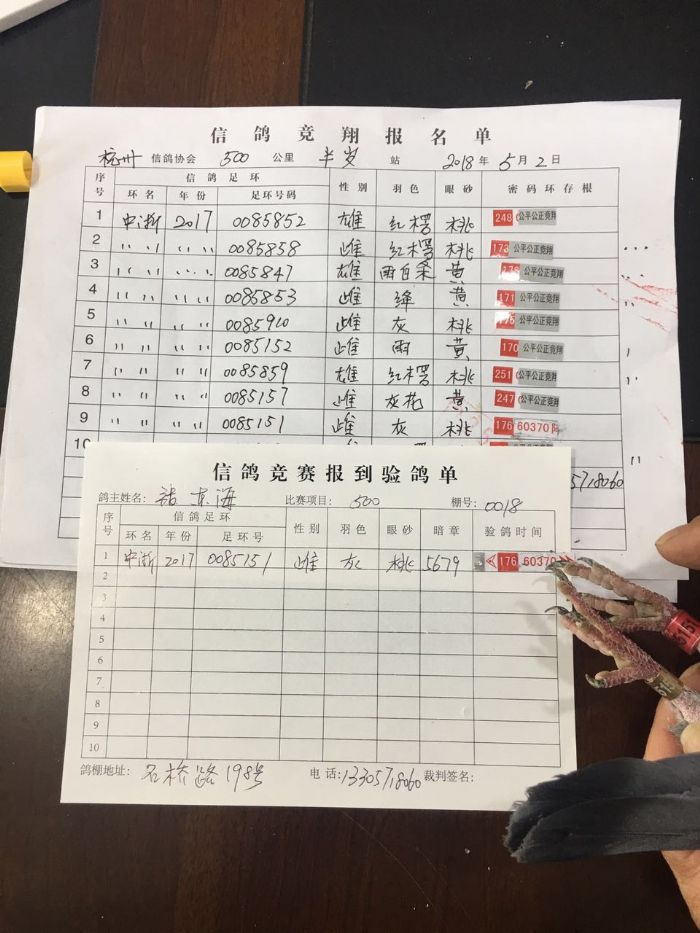 信鸽竞翔报名单
杭州 信鸽协会 500 公里 半岁 站 2018年 5月 2日
序号 信鸽足环 性别 羽色 眼砂 密码环存根
环名 年份 足环号码
1 中浙 2017 0085852 雄 红楞 桃 248 公平公正竞翔
2 〃 〃 〃 〃 0085858 雌 红楞 桃 173 公平公正竞翔
3 〃 〃 〃 〃 0085847 雄 雨白条 黄 公平公正竞翔
4 〃 〃 〃 〃 0085853 雌 绛 黄 171 公平公正竞翔
5 〃 〃 〃 〃 雌 灰 桃 公平公正竞翔
6 〃 〃 〃 〃 0085152 雌 雨 黄 170 公平公正竞翔
7 〃 〃 〃 〃 0085859 雄 红楞 桃 251 公平公正竞翔
8 〃 〃 〃 〃 0085157 雌 灰花 黄 247 公平公正竞翔
9 〃 〃 〃 〃 0085151 雌 灰 桃 176 60370
10
5718060
信鸽竞赛报到验鸽单
鸽主姓名: 东海 比赛项目: 500 棚号: 0018
序号 信鸽足环 性别 羽色 眼砂 暗章 验鸽时间
环名 年份 足环号
1 中浙 2017 0085151 雌 灰 桃 5679 176 60370
2
3
4
5
6
7
8
9
10
鸽棚地址: 石桥路198号 电话: 13305718060 裁判签名: